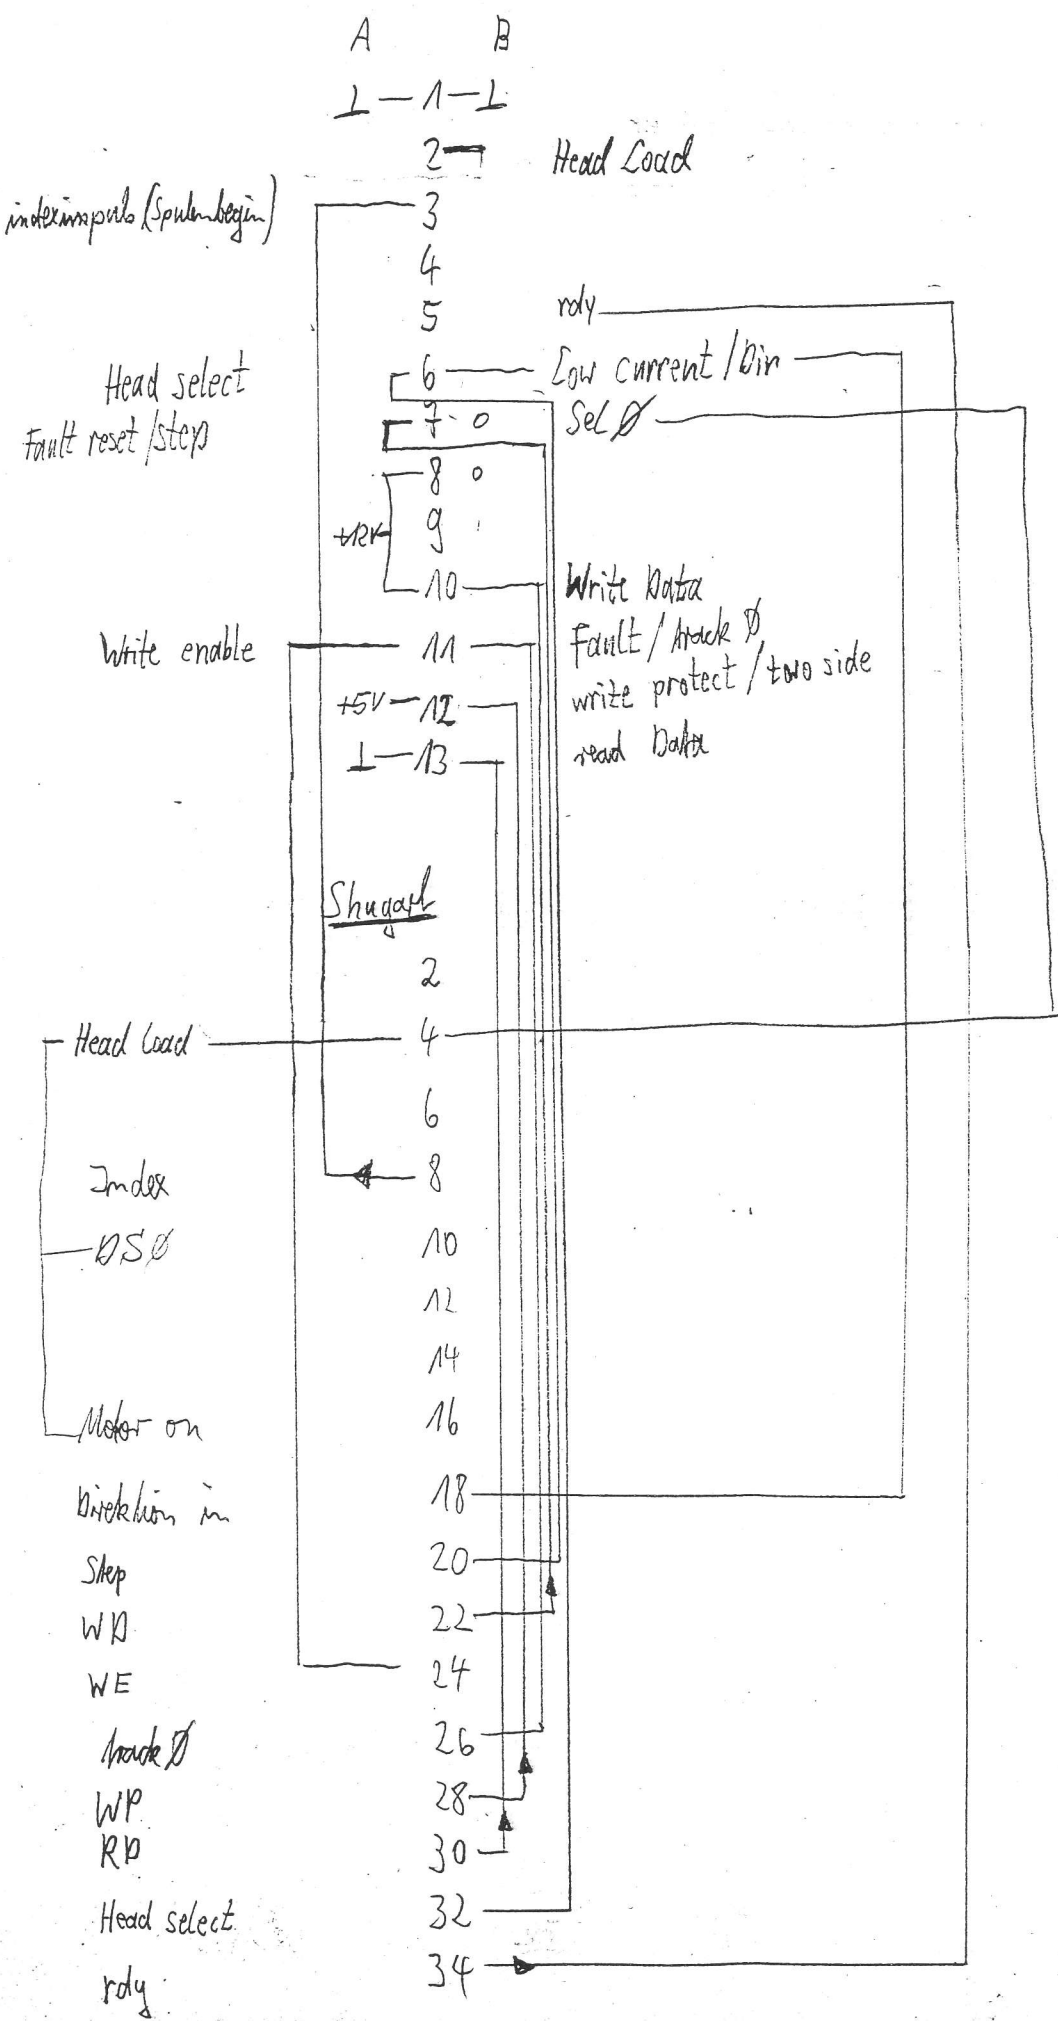 A B
⊥ — 1 — ⊥
2 Head Load
indeximpuls (Spurenbegin) 3
4
5 rdy
Head select 6 Low current / Dir
Fault reset / step 7 o Sel Ø
8 o
+12V 9
10 Write Data
Write enable 11 Fault / track Ø
+5V — 12 write protect / two side
⊥ — 13 read Data
Shugart
2
Head Load 4
6
Index 8
DSØ 10
12
14
Motor on 16
Direktion in 18
Step 20
WD 22
WE 24
track Ø 26
WP 28
RD 30
Head select 32
rdy 34